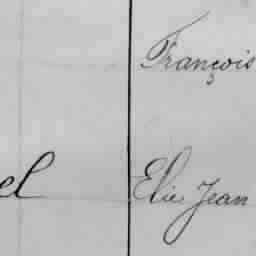 François
el Elie Jean